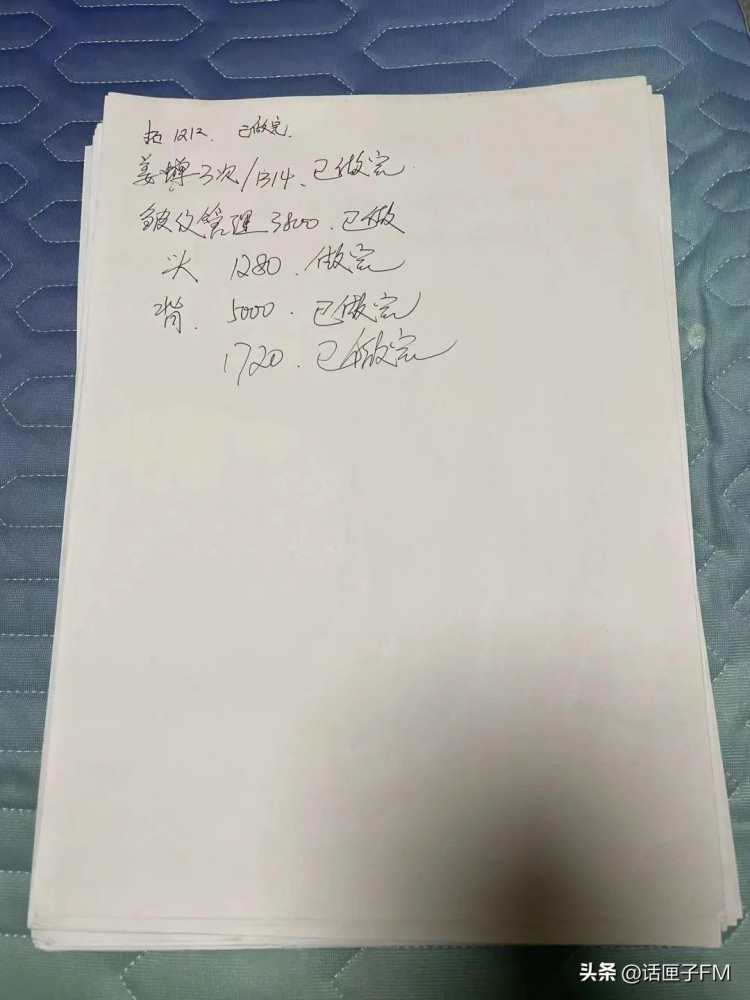 1212. 已做完.
姜蝉3次/1314.已做完
皱纹管理3800.已做
头 1280.做完
背. 5000.已做完
1720.已做完
头条 @话匣子FM